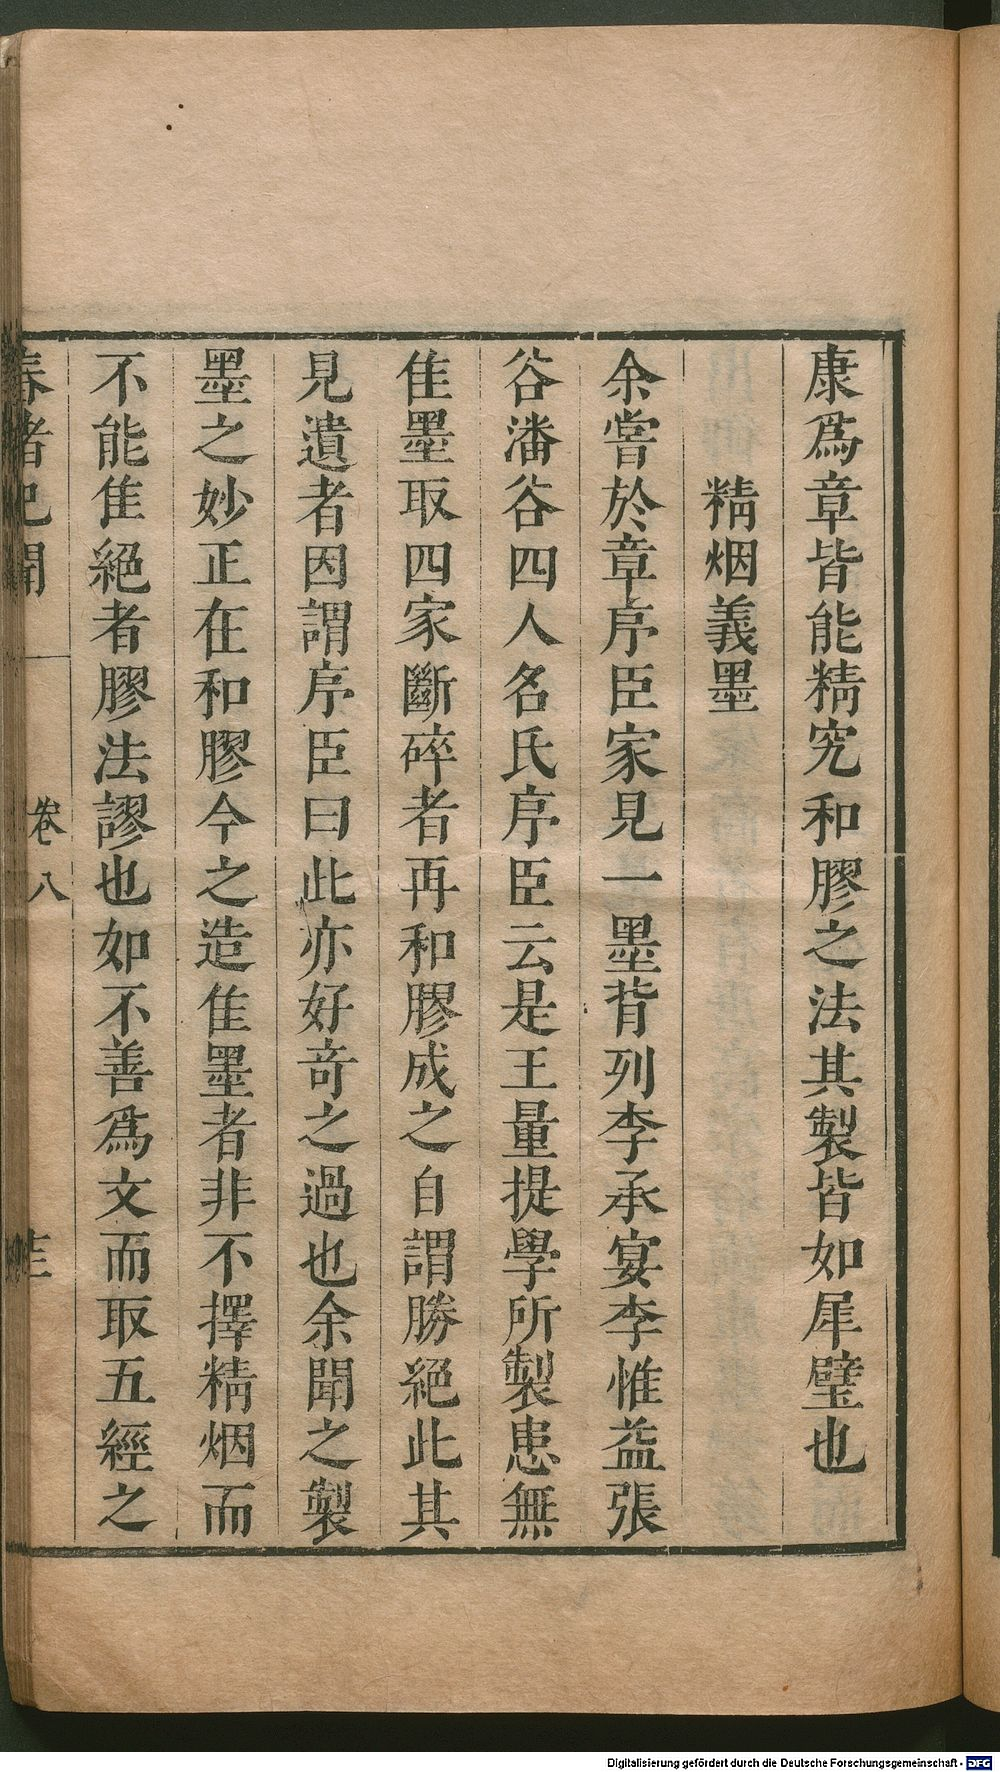 康爲章皆能精究和膠之法其製皆如犀璧也
精烟義墨
余嘗於章序臣家見一墨背列李承宴李惟益張
谷潘谷四人名氏序臣云是王量提學所製患無
佳墨取四家斷碎者再和膠成之自謂勝絕此其
見遺者因謂序臣曰此亦好竒之過也余聞之製
墨之妙正在和膠今之造佳墨者非不擇精烟而
不能佳絕者膠法謬也如不善爲文而取五經之
春渚紀聞
卷八
Digitalisierung gefördert durch die Deutsche Forschungsgemeinschaft - DFG